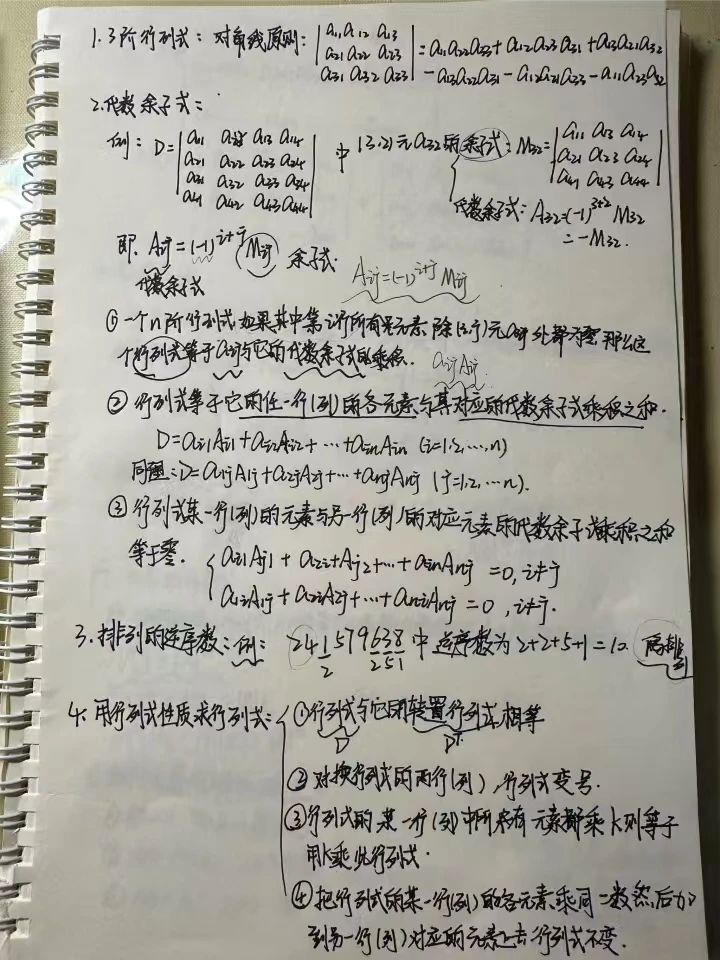 1. 3阶行列式：对角线原则：| a11 a12 a13 | = a11a22a33 + a12a23a31 + a13a21a32
| a21 a22 a23 |
| a31 a32 a33 | - a13a22a31 - a12a21a33 - a11a23a32
2. 代数余子式：
例：D = | a11 a12 a13 a14 | 中 (3,2)元a32的余子式：M32 = | a11 a13 a14 |
| a21 a22 a23 a24 | | a21 a23 a24 |
| a31 a32 a33 a34 | | a41 a43 a44 |
| a41 a42 a43 a44 |
代数余子式：A32 = (-1)^{3+2} M32
= -M32.
即. Aij = (-1)^{i+j} Mij 余子式.
代数余子式
Aij = (-1)^{i+j} Mij
① 一个n阶行列式,如果其中第i行所有元素除(i,j)元aij外都为零,那么这
个行列式等于aij与它的代数余子式的乘积. aijAij.
② 行列式等于它的任一行(列)的各元素与其对应的代数余子式乘积之和.
D = ai1Ai1 + ai2Ai2 + ··· + ainAin (i=1,2,···,n)
同理：D = a1jA1j + a2jA2j + ··· + anjAnj (j=1,2,···n).
③ 行列式某一行(列)的元素与另一行(列)的对应元素的代数余子式乘积之和
等于零. { ai1Aj1 + ai2+Aj2 + ··· + ainAnj = 0, i≠j
a1iA1j + a2iA2j + ··· + aniAnj = 0, i≠j.
3. 排列的逆序数：例： 241579638 中 逆序数为 2+2+5+1=10. 偶排列
2 251
4. 用行列式性质求行列式：{ ① 行列式与它的转置行列式相等
D D^T
② 对换行列式的两行(列),行列式变号.
③ 行列式的某一行(列)中所有元素都乘k则等于
用k乘此行列式.
④ 把行列式的某一行(列)的各元素乘同一数然后加
到另一行(列)对应的元素上去行列式不变.